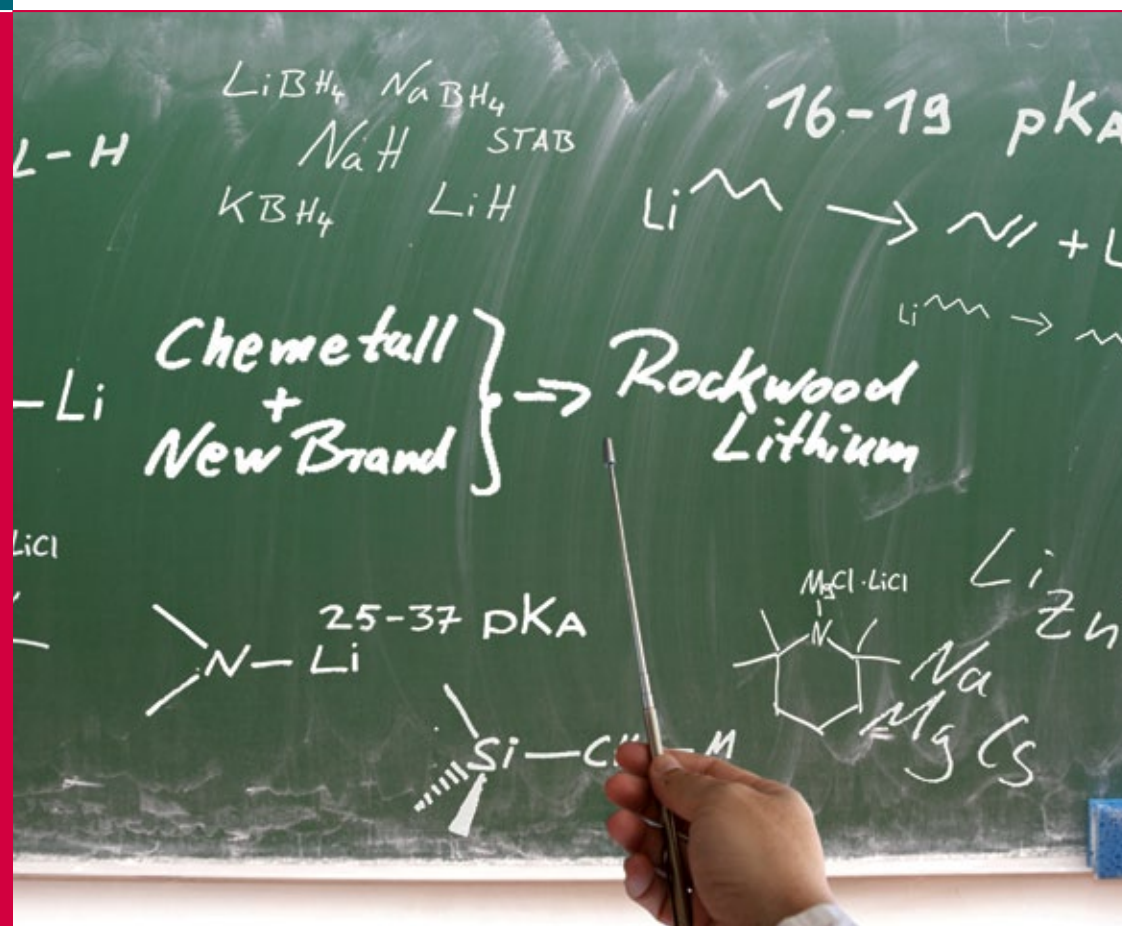 LiBH₄ NaBH₄
L-H
NaH STAB
KBH₄ LiH
16-19 pKA
Li → + L
Li →
Chemetall
+
New Brand
→ Rockwood
Lithium
-Li
LiCl
25-37 pKA
N-Li
Si-C -M
MgCl·LiCl
N
Li
Zn
Na
Mg Cs